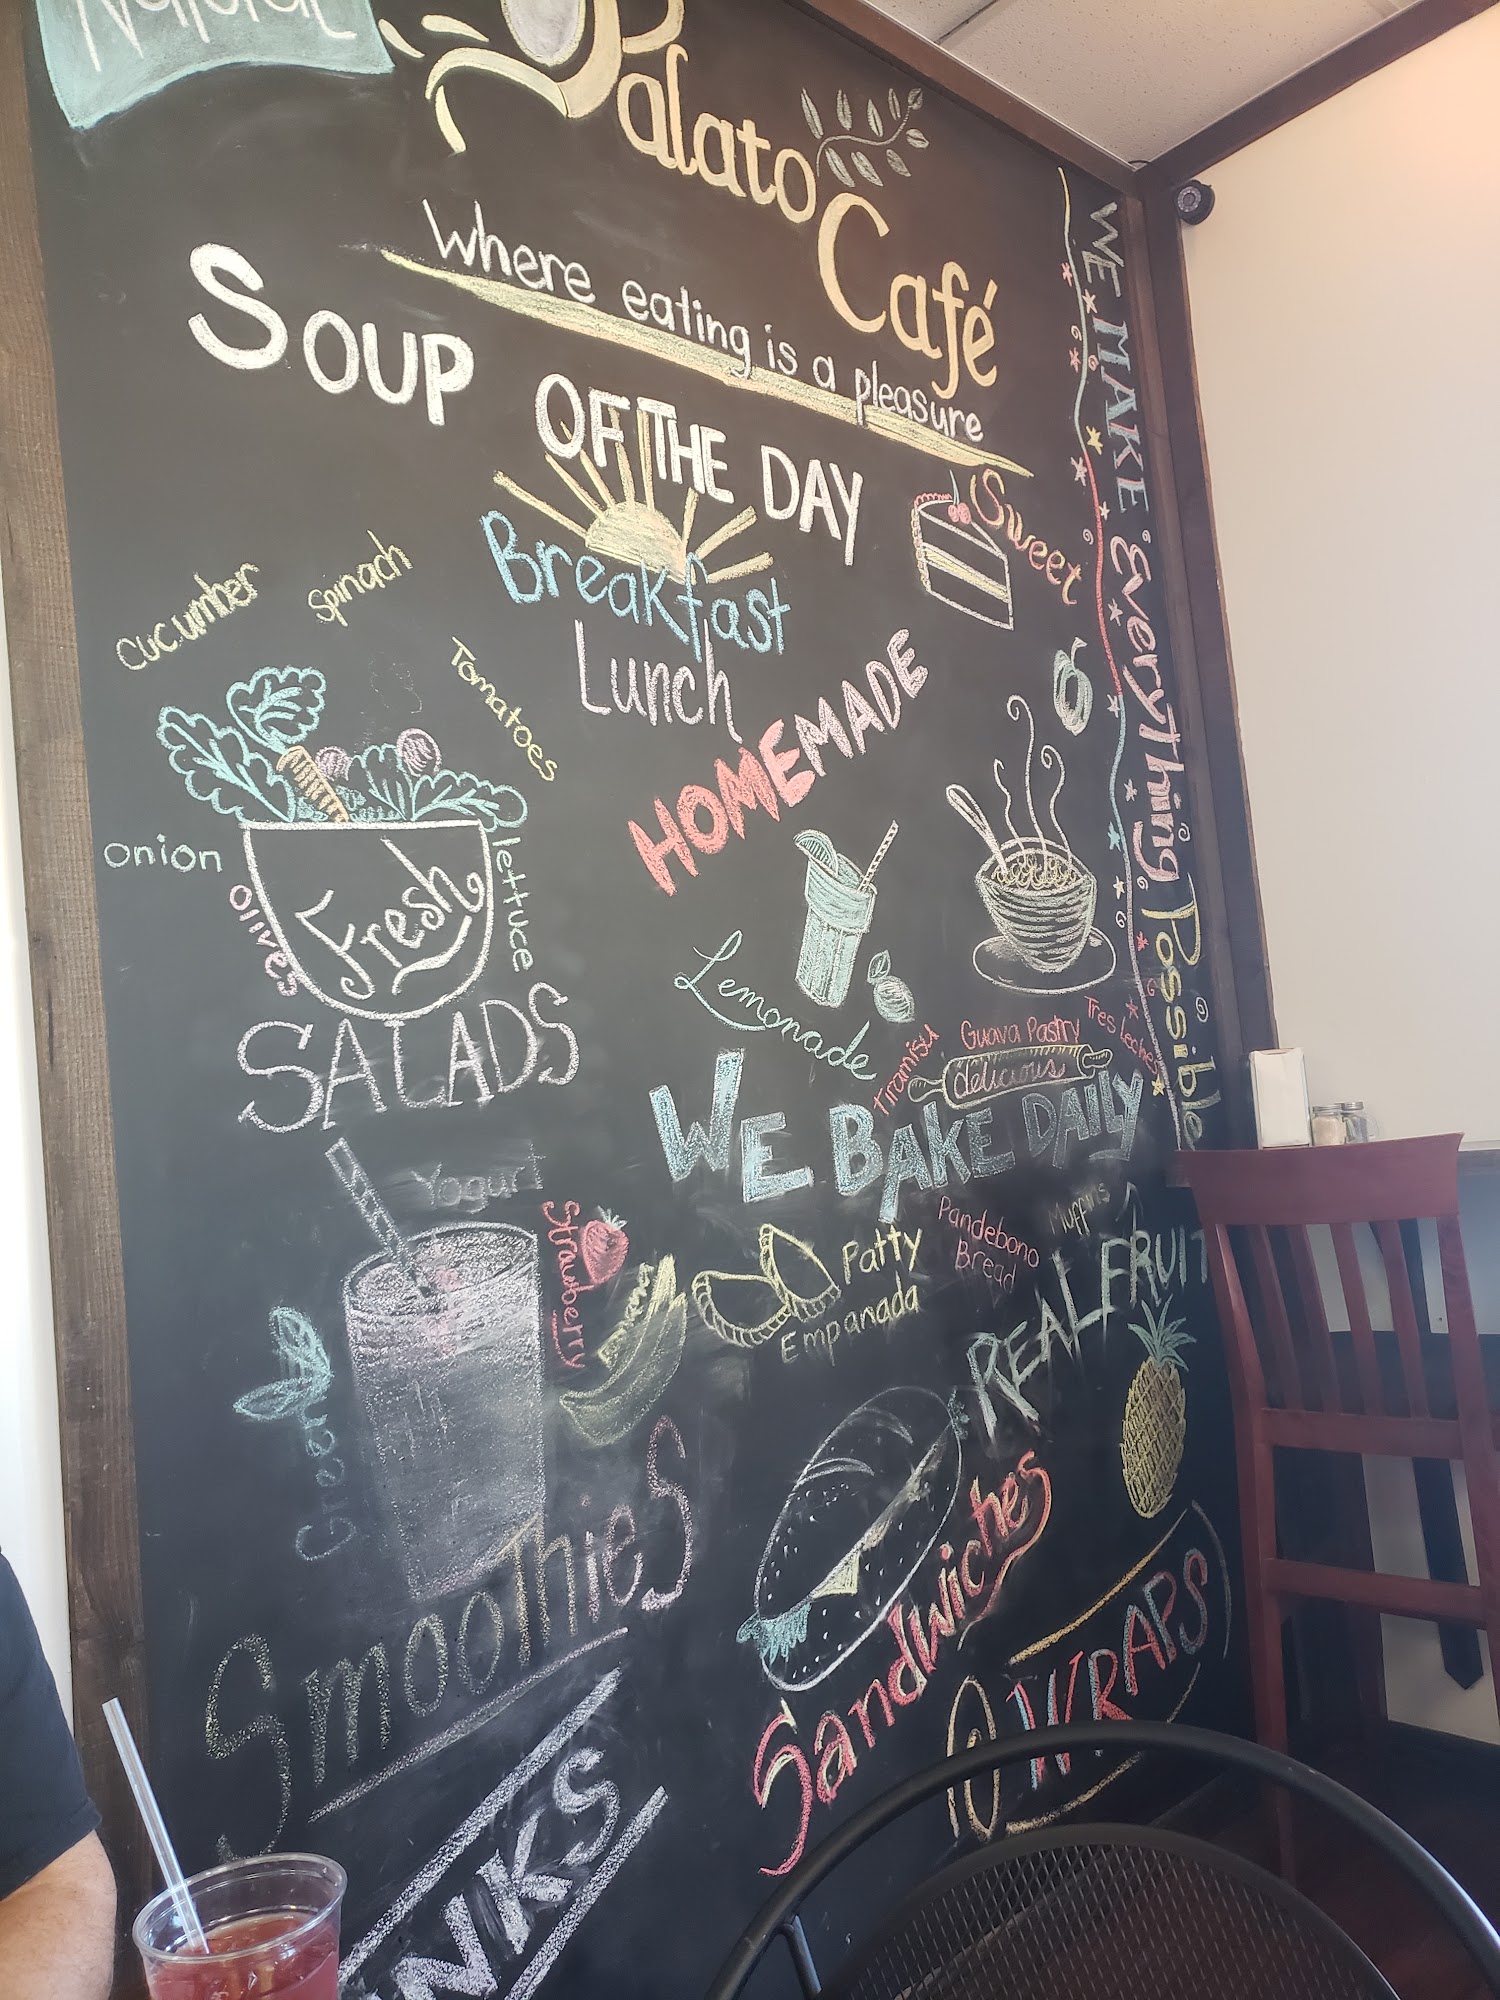 Natural
Palato Café
Where eating is a pleasure
SOUP OF THE DAY
WE MAKE Everything Possible
Sweet
Breakfast
Lunch
HOMEMADE
cucumber
spinach
Tomatoes
onion
olives
lettuce
Fresh
SALADS
Lemonade
tiramisu
Guava Pastry
Tres leches
delicious
WE BAKE DAILY
Yogurt
Strawberry
Green
Smoothies
Patty
Empanada
Pandebono
Bread
Muffins
REAL FRUIT
Sandwiches
WRAPS
NKS